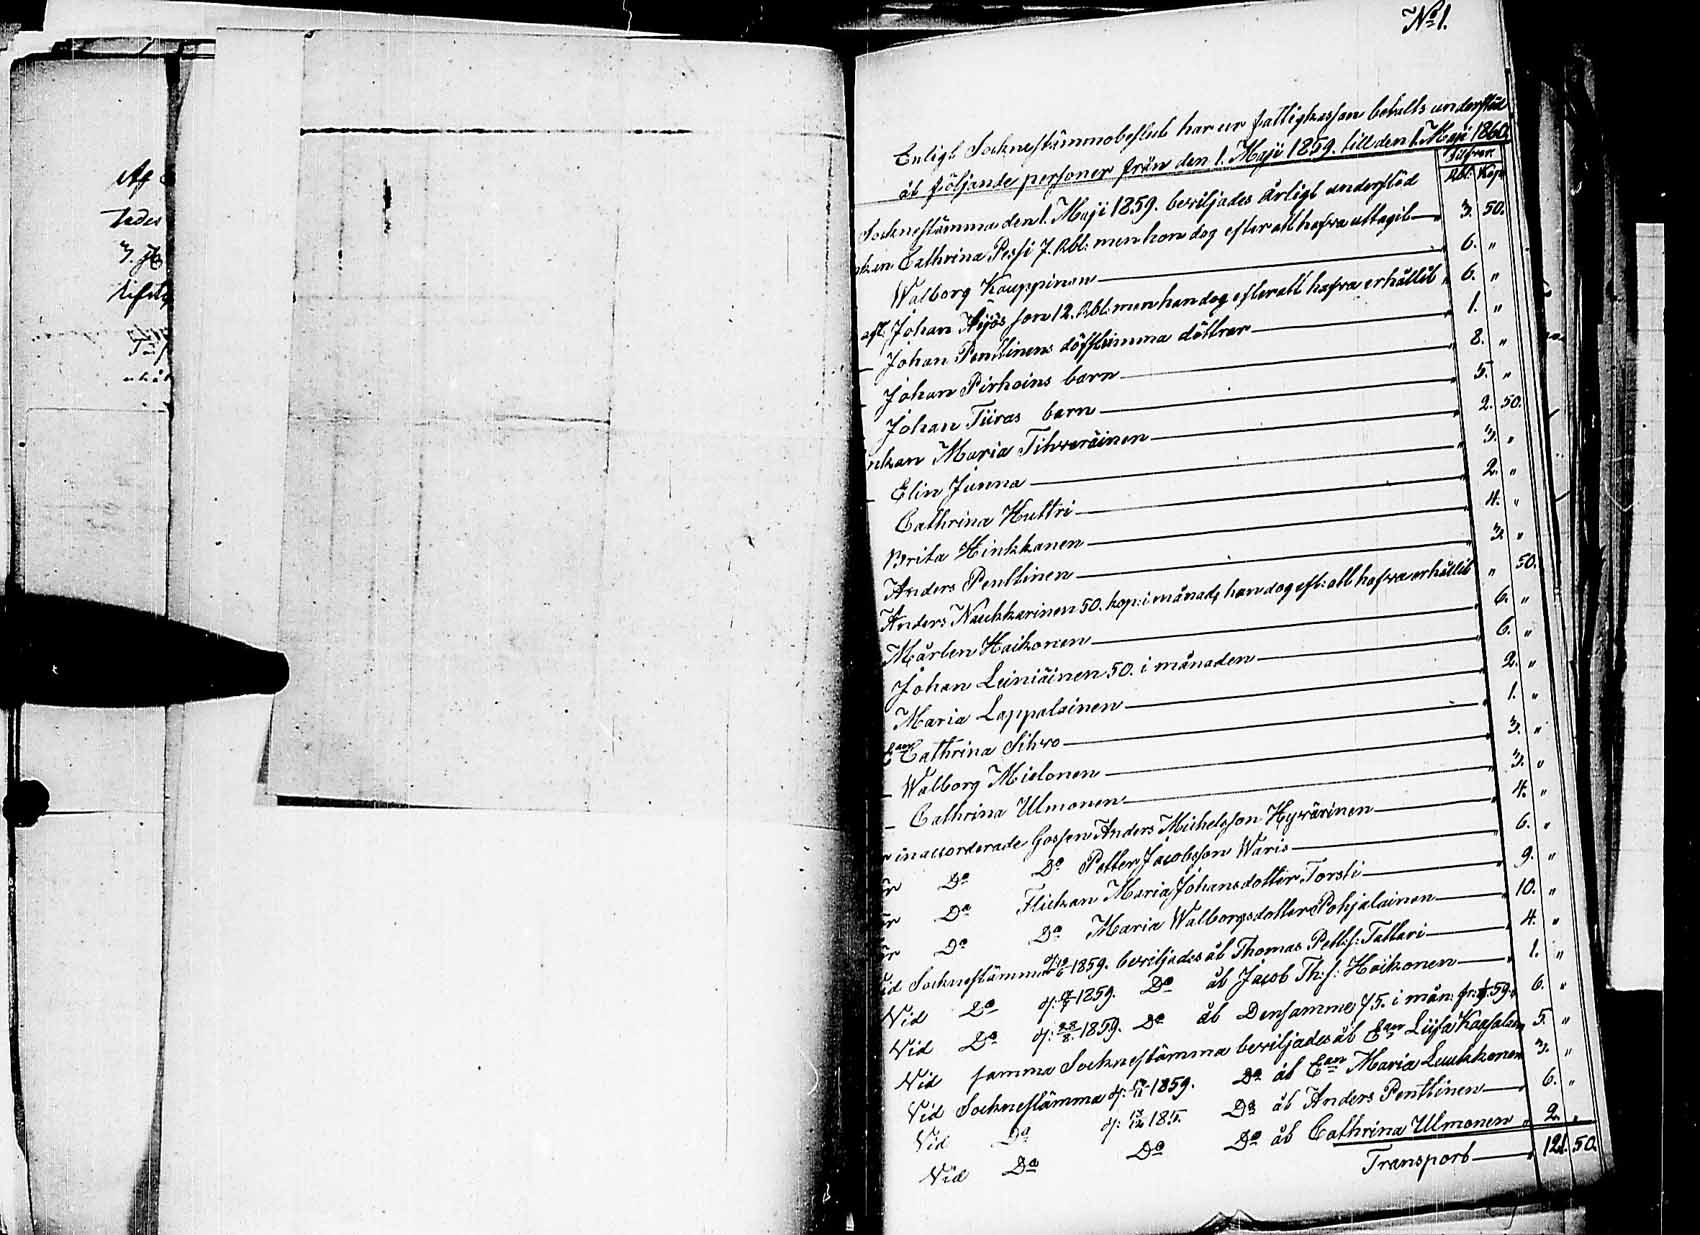 No 1.
Enligt Socknestämmobeslut har ur fattigkassan betalts understöd
åt följande personer från den 1. Maji 1859. till den 1. Maji 1860.
Silfver
Rbl: Kop:
Socknestämma den 1. Maji 1859. beviljades årligt understöd
Cathrina Pessi 7. Rbl: men hon dog efter att hafva uttagit 3. 50.
Walborg Kauppinen 6. "
Johan Äijös son 12. Rbl: men han dog efter att hafva erhållit 6. "
Johan Penttinens döfstumma döttrar 1. "
Johan Pirhoins barn 8. "
Johan Tiiras barn 5. "
Maria Tihveräinen 2. 50.
Elin Junna 3. "
Cathrina Huttri 2. "
Brita Hinkkanen 4. "
Anders Penttinen 3. "
Anders Naukkarinen 50. kop: i månad, han dog eft: att hafva erhållit " 50.
Mårten Haikonen 6. "
Johan Leiniäinen 50. i månaden 6. "
Maria Lappalainen 2. "
Ean Cathrina Sihvo 1. "
Walborg Mielonen 3. "
Cathrina Ulmonen 3. "
inaccorderade Gossen Anders Michelsson Hyvärinen 4. "
Do Do Petter Jacobsson Waris 6. "
Do Flickan Maria Johansdotter Torsti 9. "
Do Do Maria Walborgsdotter Pohjalainen 10. "
Socknestämma 1859. beviljades åt Thomas Pett:s: Tattari 4. "
Vid Do d: 1859. Do åt Jacob Th:s: Haikonen 1. "
Vid Do d: 28/8. 1859. Do åt Densamma 75. i mån: fr: 59. 6. "
Vid samma Socknestämma beviljades åt Ean Liisa 5. "
Vid Socknestämma d: 1859. Do åt Ean Maria Luukkonen 3. "
Vid Do d: Do åt Anders Penttinen 6. "
Vid Do Do Do åt Cathrina Ulmonen 2. "
Transport 121. 50.